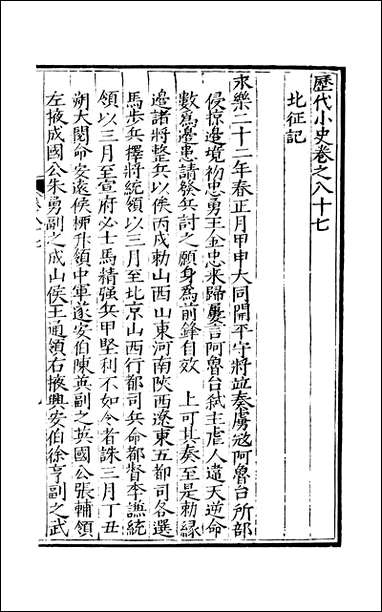 歷代小史卷之八十七
北征記
永樂二十二年春正月甲申大同開平守將竝奏虜寇阿魯台所部
侵掠邊境初忠勇王金忠來歸屢言阿魯台弒主虐人違天逆命
數爲邊患請發兵討之願身爲前鋒自效 上可其奏至是勅緣
邊諸將整兵以俟丙戌勅山西山東河南陝西遼東五都司各選
馬步兵擇將統領以三月至北京山西行都司兵命都督李謙統
領以三月至宣府必士馬精强兵甲堅利不如令者誅三月丁丑
朔大閱命安遠侯柳升領中軍遂安伯陳英副之英國公張輔領
左掖成國公朱勇副之成山侯王通領右掖興安伯徐亨副之武